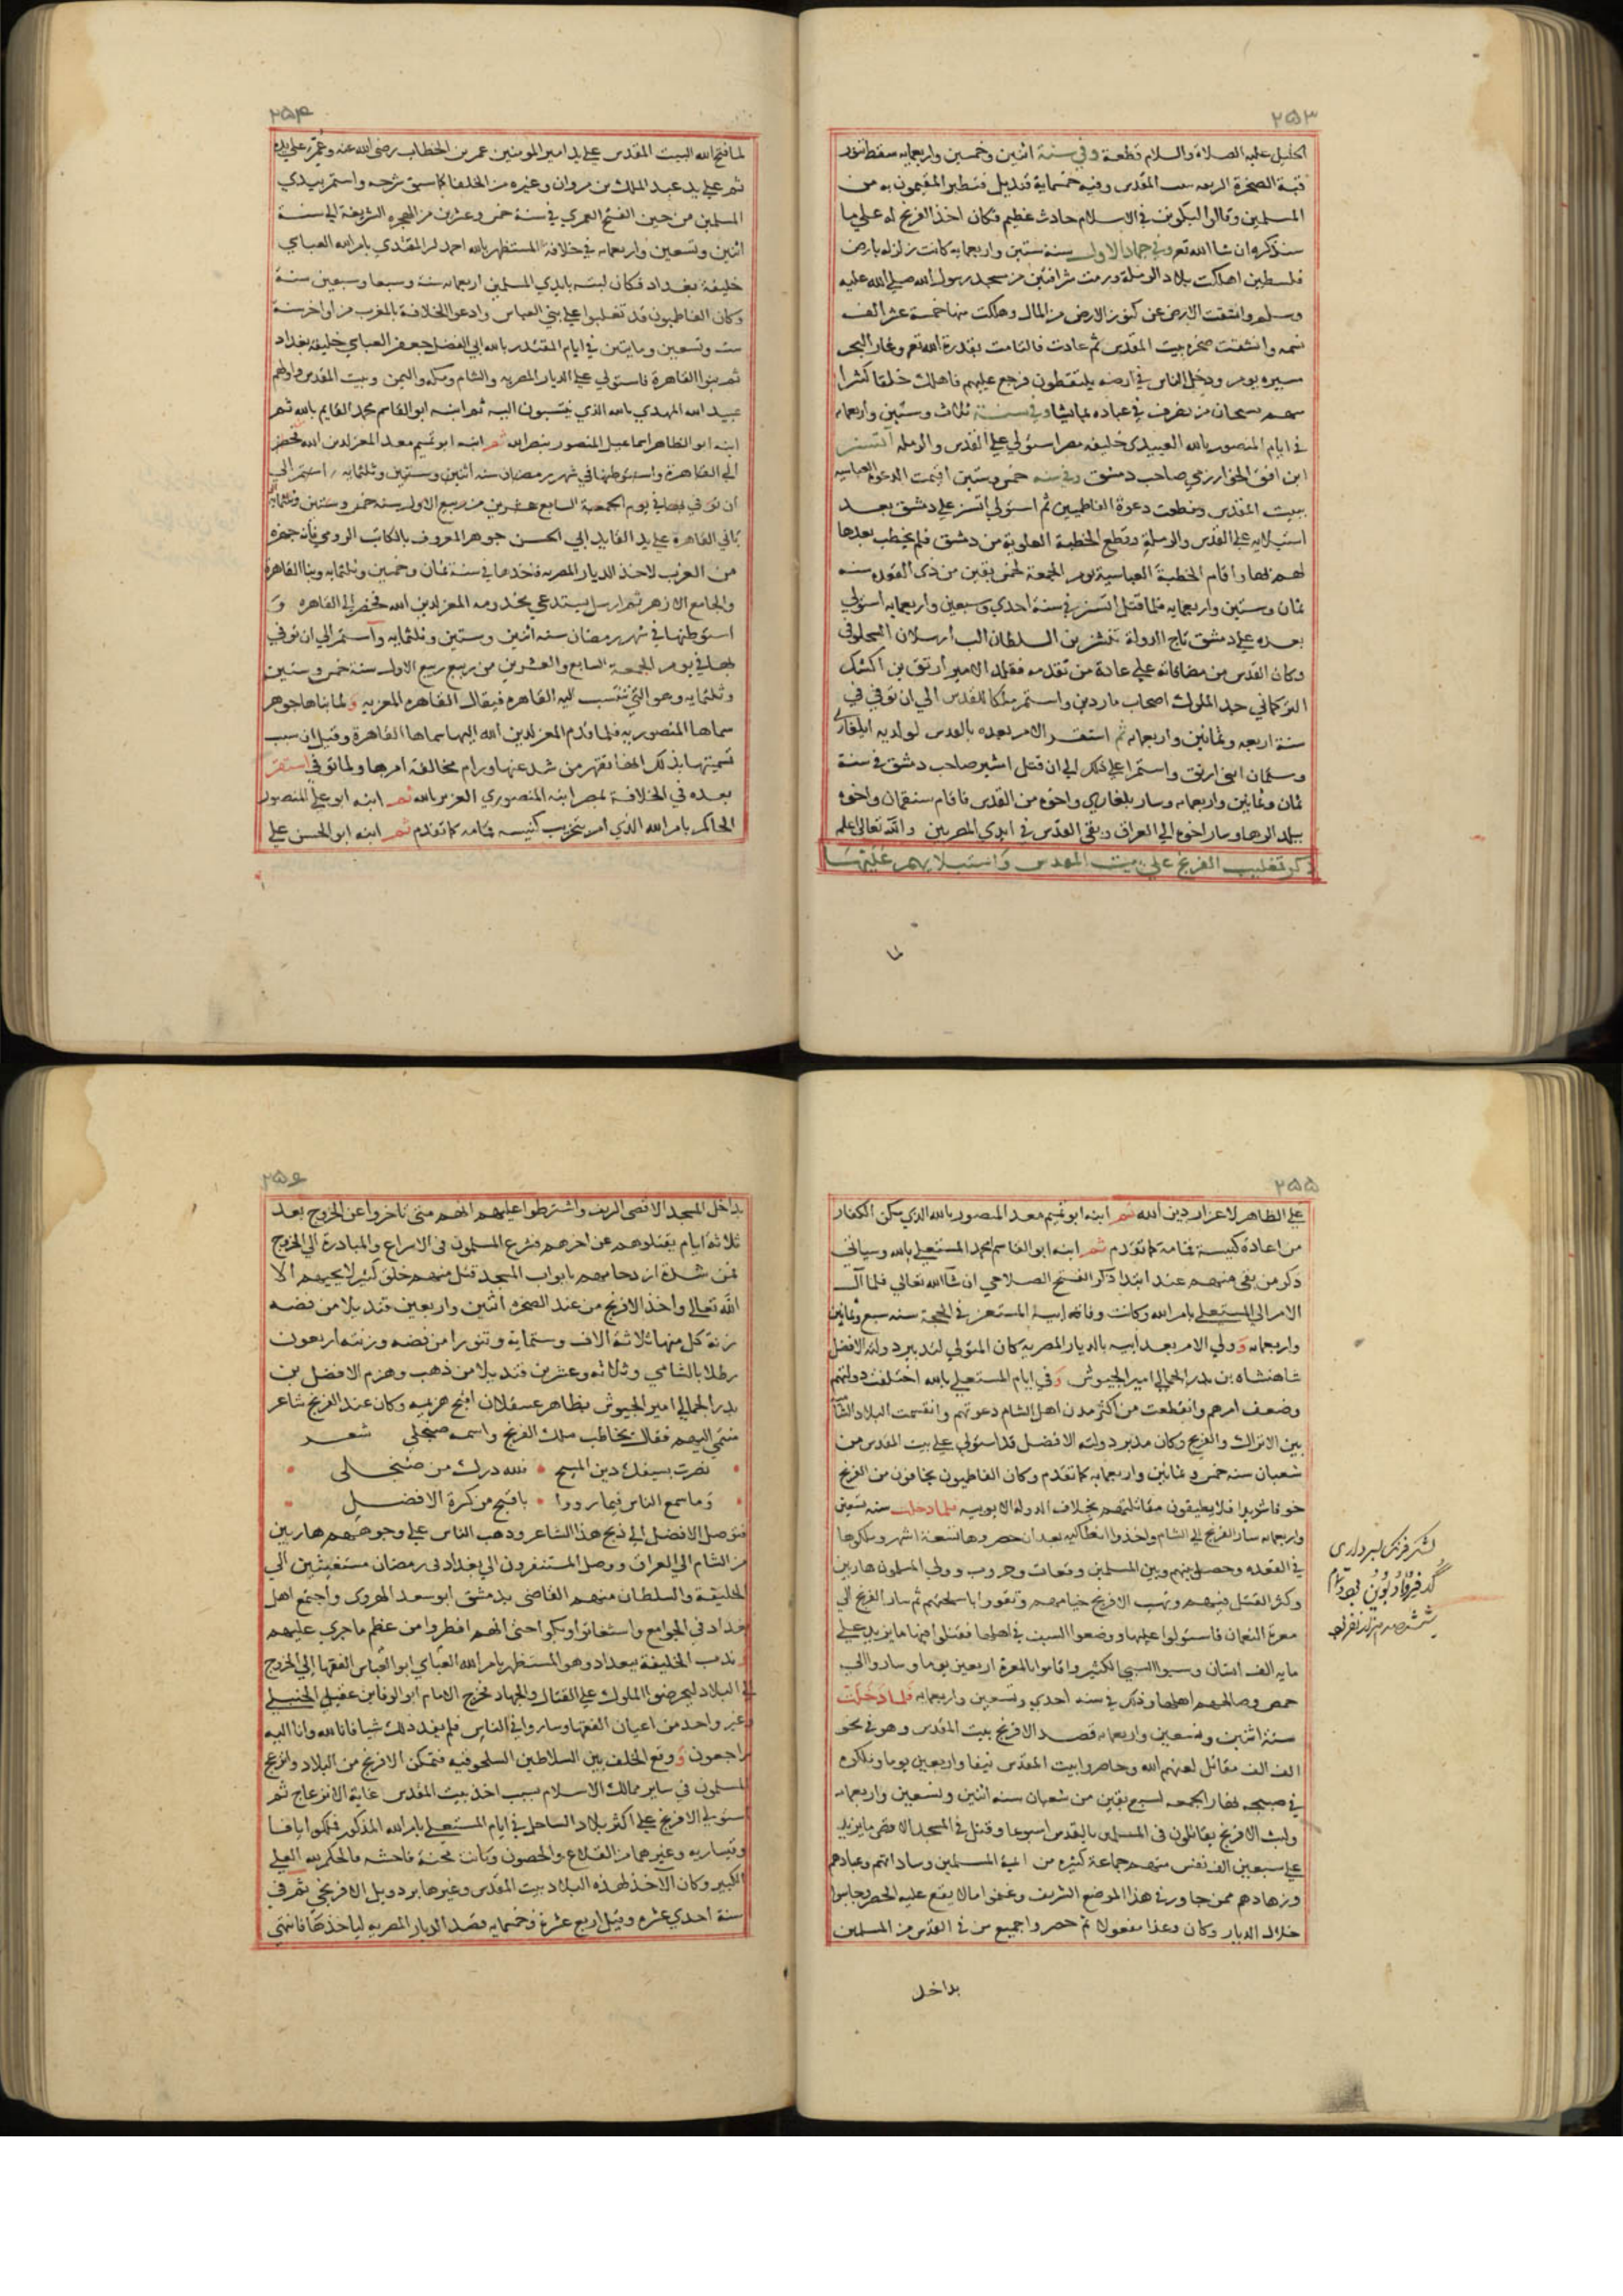 ٢٥٣
الخليل عليه الصلاة والسلام قطعة وفي سنة اثنين وخمسين واربعمايه سقط تنور
قبة الصخرة الشريفه ببيت المقدس وفيه خمسماية قنديل فتطير المقيمون به من
المسلمين وقالوا ليكونن في الاسلام حادث عظيم فكان اخذ الفرنج له علي ما
سنذكره ان شا الله تعـ وفي جمادالاولي سنه ستين واربعمايه كانت زلزله بارض
فلسطين اهلكت بلاد الرمله ورمت شرافتين من مسجد رسول الله صلي الله عليه
وسلم وانشقت الارض عن كنوز الارض من المال وهلكت منها خمسة عشر الف
نسمه وانشقت صخره بيت المقدس ثم عادت فالتامت بقدرة الله تعـ وغار البحر
سيره يوم ودخل الناس في ارضه يلتقطون فرجع عليهم فاهلك خلقا كثيرا
منهم سبحان من تصرف في عباده بما يشا وفي سنة ثلاث وستين واربعمايه
في ايام المنصور بالله العبيدي خليفه مصر استولي علي القدس والرمله اتسز
ابن افق الخوارزمي صاحب دمشق وفي سنه خمس وستين اقيمت الدعوة العباسيه
ببيت المقدس وقطعت دعوة الفاطميين ثم استولي اتسز علي دمشق بعد
استيلايه علي القدس والرملة وقطع الخطبة العلوية من دمشق فلم يخطب بعدها
لهم بها واقام الخطبة العباسية يوم الجمعة لخمس بقين من ذى القعده سنه
ثمان وستين واربعمايه فلما قتل اتسز في سنة احدي وسبعين واربعمايه استولي
بعده علي دمشق تاج الدولة تتش بن السلطان الب ارسلان السلجوقى
وكان القدس من مضافاته علي عادة من تقدمه فقلد الامير ارتق بن اكسك
التركماني جد الملوك اصحاب ماردين واستمر مالكا للقدس الي ان توفي في
سنة اربعه وثمانين واربعمايه ثم استقر الامر بعده بالقدس لولديه ايلغازي
وسقمان ابني ارتق واستمرا علي ذلك الي ان قتل تتش صاحب دمشق في سنة
ثمان وثمانين واربعمايه وسار بلغاري واخوه من القدس فاقام سنقمان واخوه
ببلد الرها وسار اخوه الي العراق وبقى القدس في ايدي المصريين والله تعالى اعلم
ذكر تغليب الفرنج علي بيت المقدس واستيلايهم عليها
لما
٢٥٤
لما فتح الله البيت المقدس علي يد امير المومنين عمر بن الخطاب رضي الله عنه وعمره علي يده
ثم علي يد عبد الملك بن مروان وغيره من الخلفا كما سبق شرحه واستمر بيدي
المسلمين من حين الفتح العمري في سنة خمس وعشرين من الهجره الشريفة الي سنة
اثنين وتسعين واربعمايه في خلافة المستظهر بالله احمد ابن المقتدي بامر الله العباسي
خليفة بغداد فكان لبثه بايدي المسلمين اربعمايه سنة وسبعا وسبعين سنة
وكان الفاطميون قد تغلبوا علي بني العباس وادعوا الخلافة بالمغرب من اواخر سنة
ست وتسعين ومايتين في ايام المقتدر بالله ابي الفضل جعفر العباسي خليفه بغداد
ثم بنوا القاهرة فاستولي علي الديار المصريه والشام ومكه واليمن وبيت المقدس واولهم
عبيد الله المهدي بالله الذي ينتسبون اليه ثم ابنه ابو القاسم محمد القايم بالله ثم
ابنه ابو الظاهر اسماعيل المنصور بنصر الله ثم ابنه ابو تميم معد المعز لدين الله فحضر
الي القاهرة واستوطنها في شهر رمضان سنه اثنين وستين وثلثمايه واستمر الي
ان توفي بها في يوم الجمعه السابع عشرين من ربيع الاول سنه خمس وستين وثلثمايه
باني القاهرة علي يد القايد ابي الحسن جوهر المعروف بالكاتب الرومي فانه جهزه
من الغرب لاخذ الديار المصريه فاخذها في سنة ثمان وخمسين وثلثمايه وبنا القاهره
والجامع الازهر ثم ارسل يستدعي مخدومه المعز لدين الله فحضر الي القاهره و
استوطنها في شهر رمضان سنه اثنين وستين وثلثمايه واستمر الي ان توفي
بها في يوم الجمعه السابع والعشرين من ربيع ربيع الاول سنة خمس وستين
وثلثمايه وهو التي تنتسب اليه القاهره فيقال القاهره المعزيه ولما بناها جوهر
سماها المنصوريه فلما قدم المعز لدين الله اليها سماها القاهرة وقيل ان سبب
تسميتها بذلك انها تقهر من شد عنها ورام مخالفة امرها ولما توفي استقر
بعده في الخلافة بمصر ابنه المنصوري العزيز بالله ثم ابنه ابو علي المنصور
الحاكم بامر الله الذي امر بتخريب كنيسه قمامه كما تقدم ثم ابنه ابو الحسن علي
٢٥٥
علي الظاهر لاعزاز دين الله ثم ابنه ابو تميم معد المنصور بالله الذي مكن الكفار
من اعادة كنيسة قمامة كما تقدم ثم ابنه ابو القاسم احمد المستعلي بالله وسياتي
ذكر من بقي منهم عند ابتدا ذكر الفتح الصلاحي ان شا الله تعالي فلما آل
الامر الي المستعلي بامر الله وكانت وفاة ابيه المستنصر في الحجة سنه سبع وثمانين
واربعمايه وولي الامر بعد ابيه بالديار المصريه كان المتولي لتدبير دولته الافضل
شاهنشاه بن بدر الجمالي امير الجيوش وفي ايام المستعلي بالله اختلفت دولتهم
وضعف امرهم وانقطعت من اكثر مدن اهل الشام دعوتهم وانقسمت البلاد الشاميه
بين الاتراك والفرنج وكان مدبر دولته الافضل قد استولي علي بيت المقدس من
شعبان سنه خمس وثمانين واربعمايه كما تقدم وكان الفاطميون يخافون من الفرنج
خوفا شديدا فلا يطيقون مقاتلتهم بخلاف الدولة الايوبيه فلما دخلت سنه تسعين
واربعمايه سار الفرنج الي الشام واخذوا انطاكيه بعد ان حصروها تسعة اشهر وملكوها
في القعده وحصل بينهم وبين المسلمين وقعات وحروب وولي المسلمون هاربين
وكثر القتل فيهم ونهب الافرنج خيامهم وتقووا باسلحتهم ثم سار الفرنج الي
معرة النعمان فاستولوا عليها ووضعوا السيف في اهلها فقتلوا فيها ما يزيد علي
مايه الف انسان وسبوا السبي الكثير واقاموا بالمعرة اربعين يوما وساروا الي
حمص وصالحهم اهلها وذلك في سنه احدي وتسعين واربعمايه فلما دخلت
سنة اثنين وتسعين واربعمايه قصد الافرنج بيت المقدس وهو في نحو
الف الف مقاتل لعنهم الله وحاصروا بيت المقدس نيفا واربعين يوما وملكوه
في صبيحه نهار الجمعه لسبع بقين من شعبان سنه اثنين وتسعين واربعمايه
ولبث الافرنج يقاتلون في المسلمين بالقدس اسبوعا وقتل في المسجد الاقصى ما يزيد
علي سبعين الف نفس منهم جماعة كثيره من ايمة المسلمين وساداتهم وعبادهم
وزهادهم ممن جاور في هذا الموضع الشريف وغنموا مالا يقع عليه الحصر وجاسوا
خلال الديار وكان وعدا مفعولا ثم حصروا جميع من في القدس من المسلمين
بداخل
لشكر فرنك
٢٥٦
بداخل المسجد الاقصى الشريف واشترطوا عليهم انهم متى تاخروا عن الخروج بعد
ثلاثة ايام يقتلوهم عن اخرهم فشرع المسلمون في الاسراع والمبادرة الي الخروج
فمن شدة ازدحامهم بابواب المسجد قتل منهم خلق كثير لا يحصيهم الا
الله تعالي واخذ الافرنج من عند الصخره اثنين واربعين قنديلا من فضه
زنة كل منها ثلاثة الاف وستماية وتنورا من فضه وزنته اربعون
رطلا بالشامي وثلاثه وعشرين قنديلا من ذهب وهزم الافضل بن
بدر الجمالي امير الجيوش بظاهر عسقلان اقبح هزيمه وكان عند الفرنج شاعر
منتمي اليهم فقال يخاطب ملك الفرنج واسمه صنجلي شعر
نصرت بسيفك دين المسيح فلله درك من صنجلى
وما سمع الناس فيما رووا باقبح من كسرة الافضل
فتوصل الافضل الي ذبح هذا الشاعر وذهب الناس علي وجوههم هاربين
من الشام الي العراق ووصل المستنفرون الي بغداد في رمضان مستغيثين الي
الخليفة والسلطان منهم القاضي بدمشق ابو سعد الهروي واجتمع اهل
بغداد في الجوامع واستغاثوا وبكوا حتى انهم افطروا من عظم ما جري عليهم
وندب الخليفة ببغداد وهو المستظهر بامر الله العباسي ابو العباس الفقها الي الخروج
الي البلاد ليحرضوا الملوك علي القتال والجهاد فخرج الامام ابو الوفا بن عقيل الحنبلي
غير واحد من اعيان الفقها وساروا في الناس فلم يفد ذلك شيا فانا لله وانا اليه
راجعون ووقع الخلف بين السلاطين السلجوقيه فتمكن الافرنج من البلاد وانزعج
المسلمون في ساير ممالك الاسلام بسبب اخذ بيت المقدس غاية الانزعاج ثم
استولي الافرنج علي اكثر بلاد الساحل في ايام المستعلي بامر الله المذكور فملكوا يافا
وقيساريه وغيرهما من القلاع والحصون وكانت محنة فاحشه فالحكم لله العلي
الكبير وكان الآخذ لهذه البلاد بيت المقدس وغيرها بردويل الافرنجي ثم في
سنة احدي عشره وقيل اربع عشرة وخمسمايه قصد الديار المصريه لياخذها فانتهي